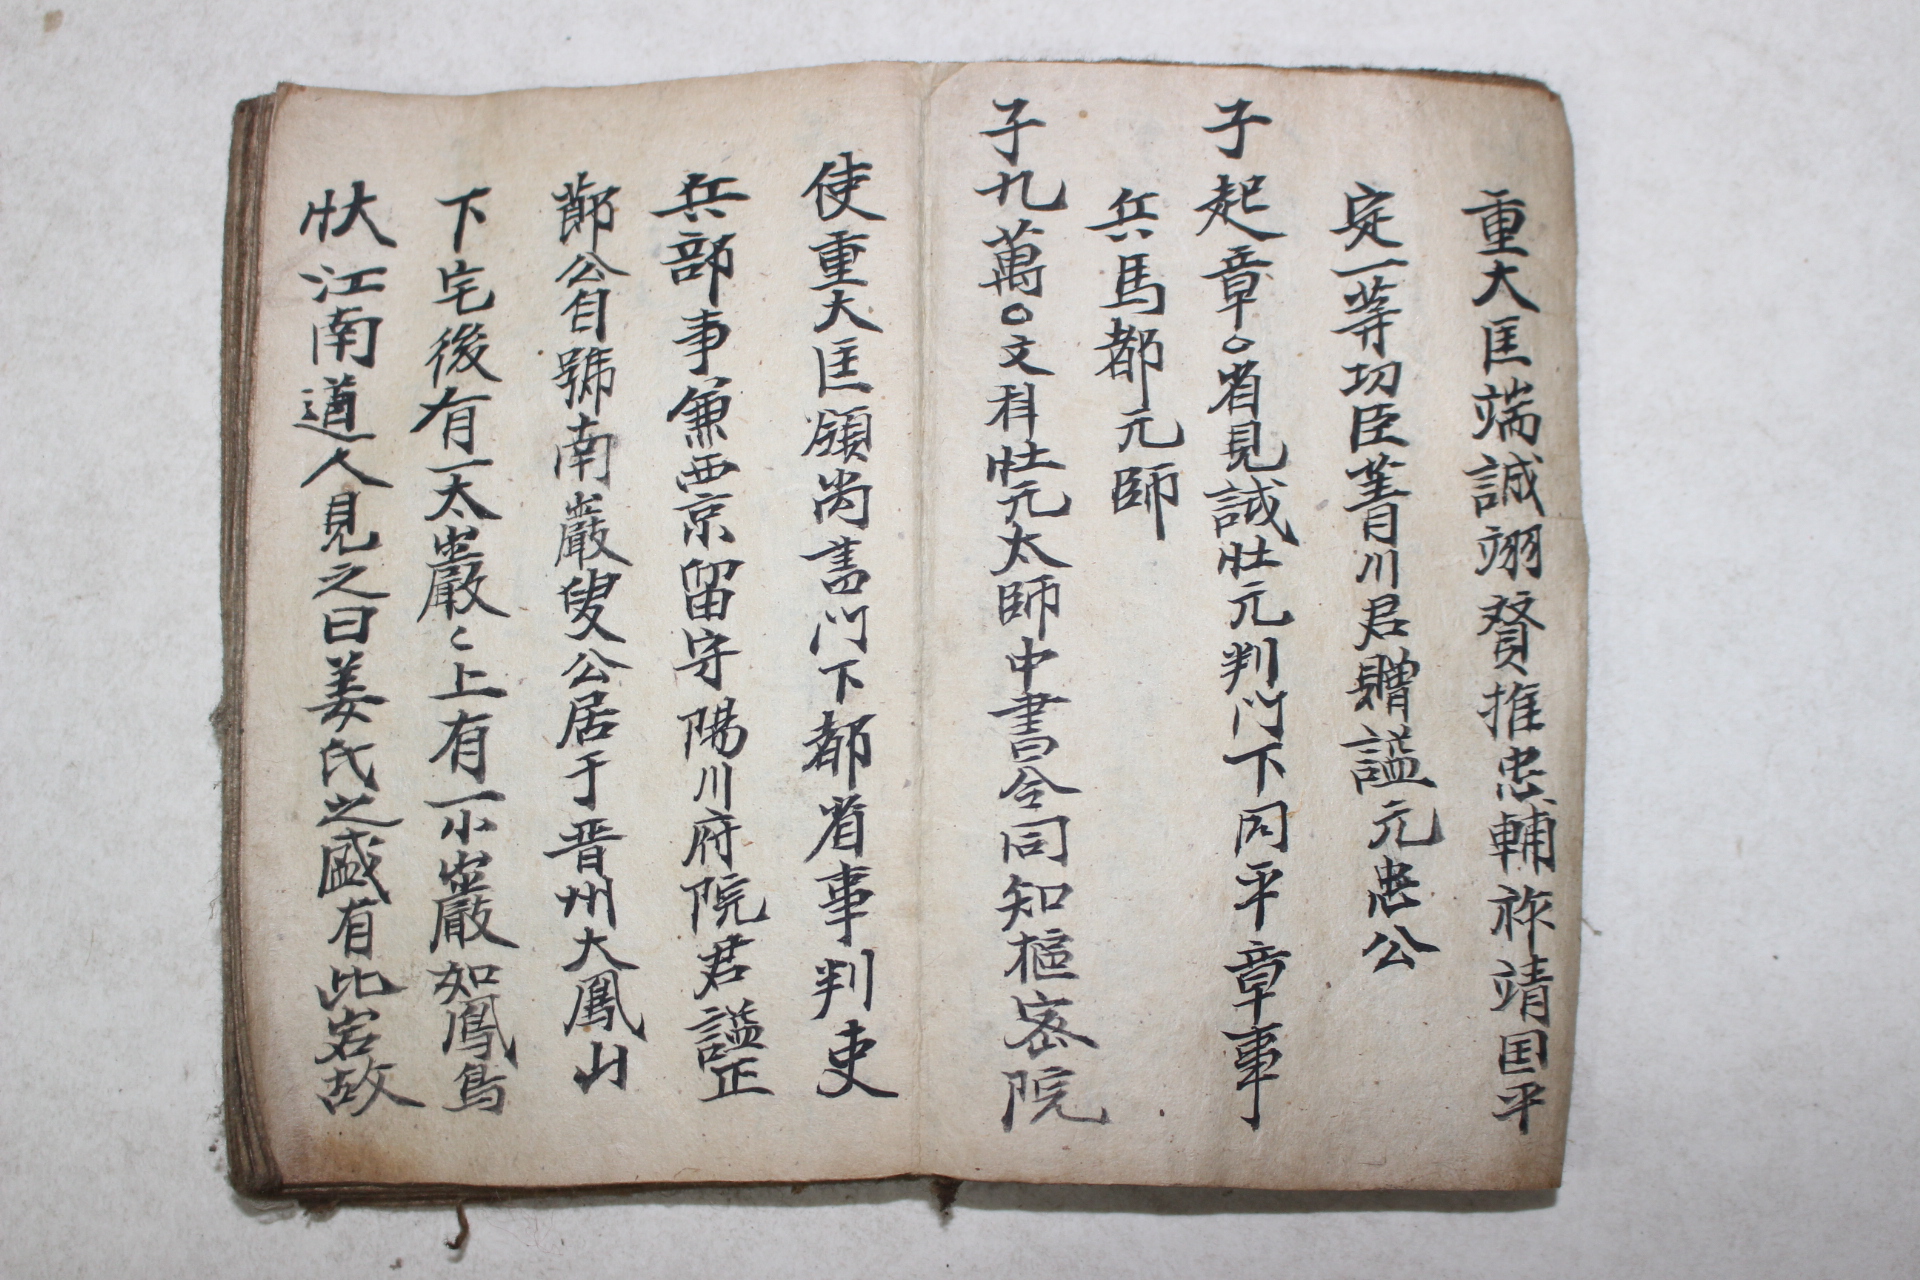 重大匡端誠翊賛推忠輔祚靖国平
㝎一等功臣菁川君贈謚元忠公
子起章○省見誠壯元判門下同平章事
兵馬都元師
子九萬○文科壯元太師中書令同知樞密院
使重大匡領尚書門下都省事判吏
兵部事兼西京留守陽川府院君謚正
節公自號南巖叟公居于晋州大鳳山
下宅後有一太巖〻上有一小巖如鳳鳥
狀江南道人見之曰姜氏之盛有比岩故